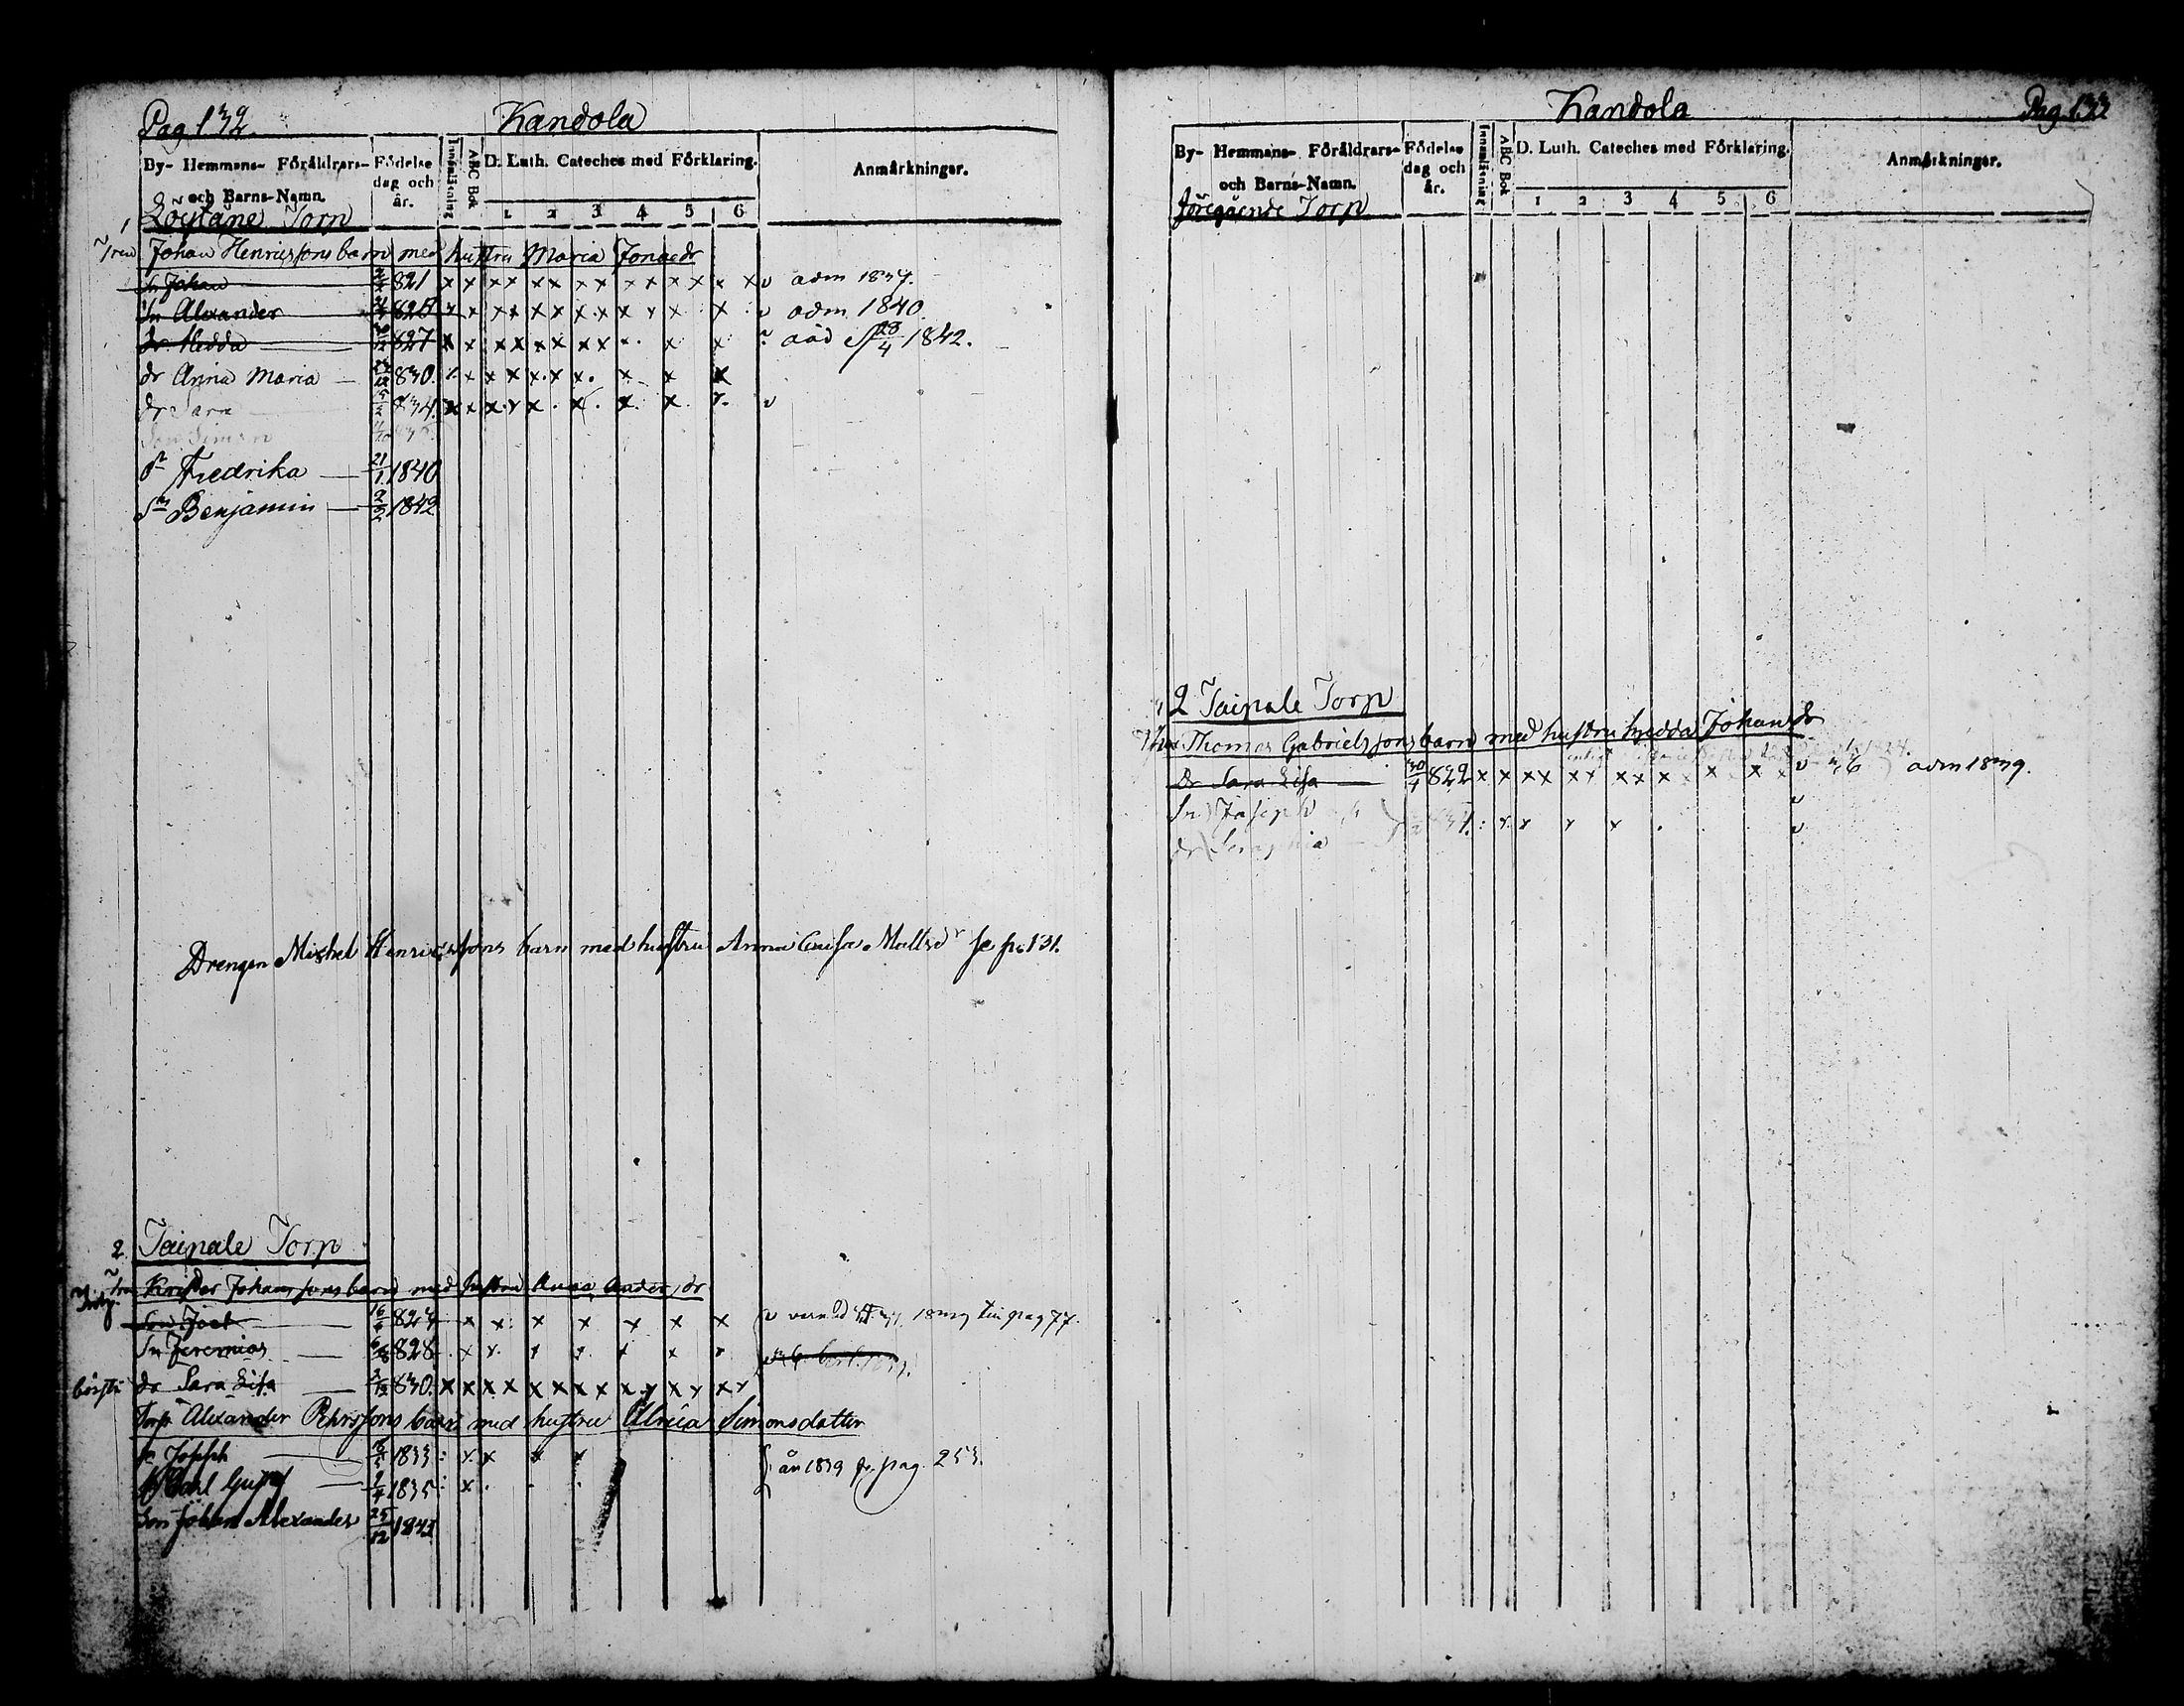 Pag 132
Kandola
By- Hemmans- Föräldrars-
och Barns-Namn.
Födelse
dag och
år.
Innanläsning
ABC Bok
D. Luth. Cateches med Förklaring.
1 2 3 4 5 6
Anmärkningar.
1 Löytäne Torp
Johan Henricssons barn med hustru Maria Jonaedr
Sn Johan 821 x x x x x x x x x x x x x v adm 1837.
Sn Alexander x x x x x x x x x x x v adm 1840
dr Hedda 30/12 827 x x x x x x x x x x aåd 23/4 1842.
dr Anna Maria 830. x x x x x x x x x
dr Sara 834. x x x x x x x x v
Son Simon
dr Fredrika 21/1 1840
Sn Benjamin 2/2 1842
Drengen Michel Henricssons barn med hustru Anna Caisa Mattsdr se p. 131.
2 Taipale Torp
Krister Johanssons barn med hustru Anna Andersdr
Son Joel 16/ 824 x x x x x x x v till pag 77.
Sn Jeremias 828 x x x x x x x
dr Sara Lisa 2/12 830. x x x x x x x x x x x x x x
Torp. Alexander Pehrssons barn med hustru Ulrica Simonsdotter
Sn Joseph 1833 : x x x x
Sn Carl Gustaf 2/4 1835 : x . . .
år 1839 fr. pag. 253.
Son Johan Alexander 25/12 1841
Kandola
Pag. 133
By- Hemmans- Föräldrars-
och Barns-Namn.
Födelse
dag och
år.
Innanläsning
ABC Bok
D. Luth. Cateches med Förklaring.
1 2 3 4 5 6
Anmärkningar.
föregående Torp
2 Taipale Torp
Thomas Gabrielssons barn med hustru Hedda Johansdr
Dr Sara Lisa 30/4 822 x x x x x x x x x x x x v adm 1839.
Sn Joseph v
dr Seraphia : x x x x . v